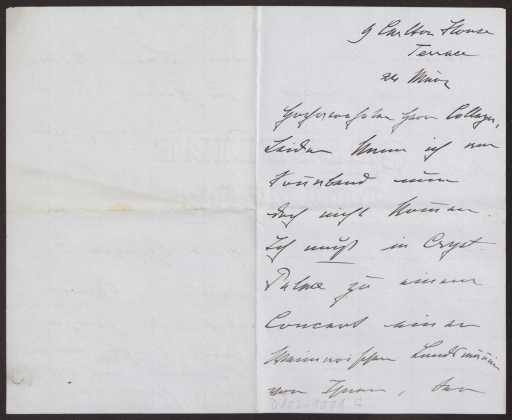 9 Carlton House
Terrace
24 März
Hochverehrter Herr College,
Leider kann ich am
Sonnabend nun
doch nicht kommen.
Ich muß in Cryst.
Palace zu einem
Concert einer
Landsmännin
von Ihnen, der